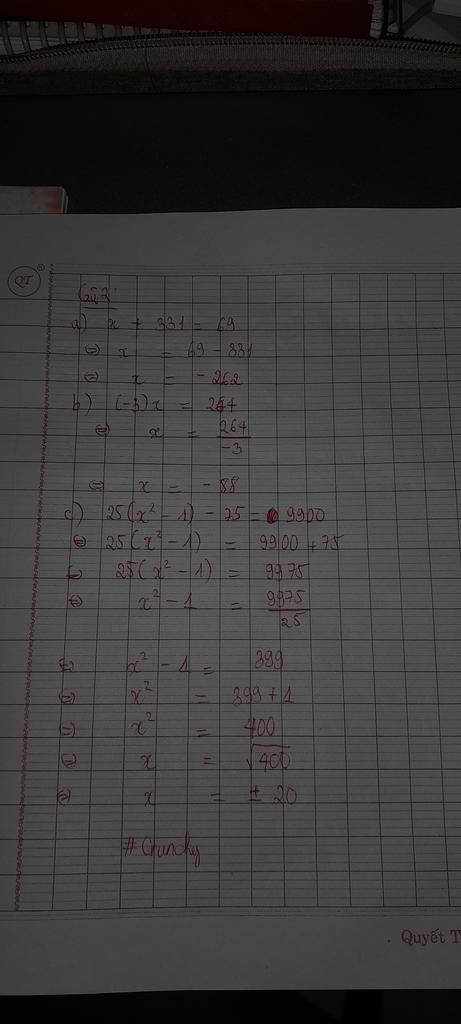 QT
Câu 2
a) x + 331 = 69
⇔ x = 69 - 331
⇔ x = - 262
b) (-3)x = 264
⇔ x = 264/-3
⇔ x = - 88
c) 25(x² - 1) - 75 = 9900
⇔ 25(x² - 1) = 9900 + 75
⇔ 25(x² - 1) = 9975
⇔ x² - 1 = 9975/25
⇔ x² - 1 = 399
⇔ x² = 399 + 1
⇔ x² = 400
⇔ x = √400
⇔ x = ± 20
#Crunchy
. Quyết T